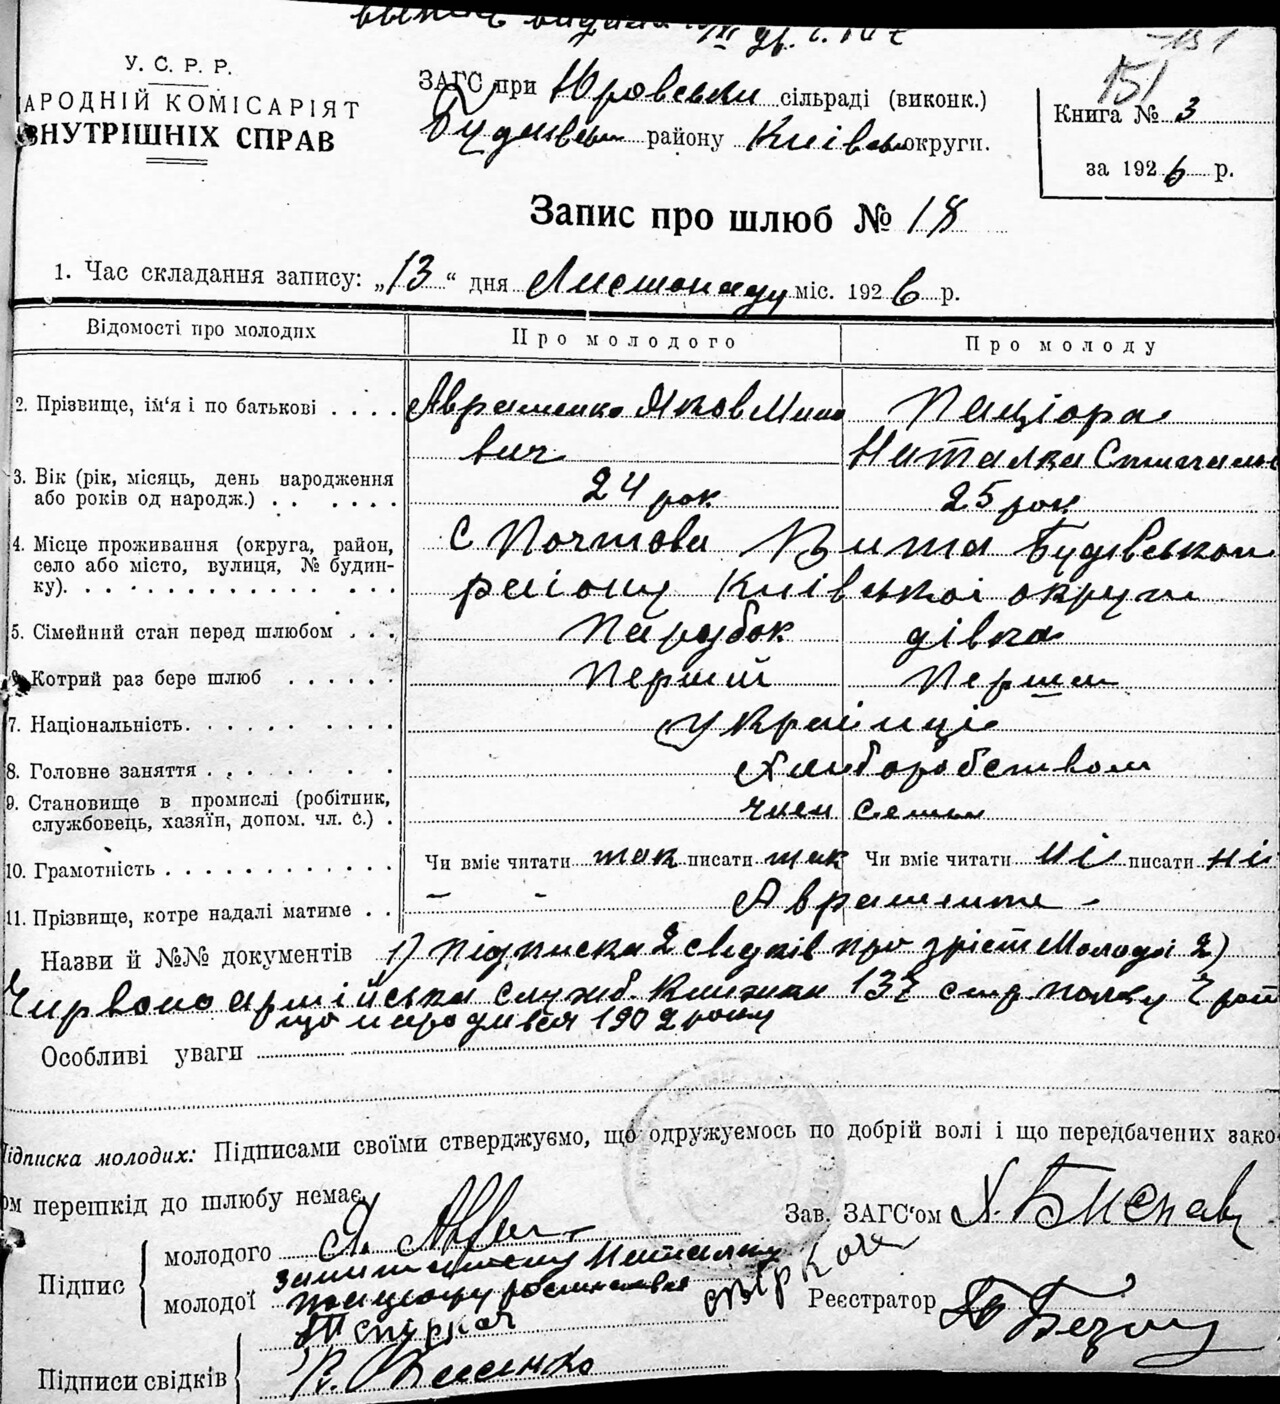 151
151
У. С. Р. Р.
АРОДНІЙ КОМІСАРІЯТ
ВНУТРІШНІХ СПРАВ
ЗАГС при Юровський сільраді (виконк.)
Будаївсьн району Київсь округи.
Книга № 3
за 1926 р.
Запис про шлюб № 18
1. Час складання запису: „13“ дня Листопаду міс. 1926 р.
Відомості про молодих
Про молодого
Про молоду
2. Прізвище, ім'я і по батькові . . . . Авраменко Яков Мино Паціора
вич Наталка Степанов
3. Вік (рік, місяць, день народження
або років од народж.) . . . . . . . 24 рок 25 рок
4. Місце проживання (округа, район,
село або місто, вулиця, № будин-
ку). . . . . . . . . . . . . . .
С Почтова Вита Будаївського
району Київської округи
5. Сімейний стан перед шлюбом . . . Парубок дівка
6. Котрий раз бере шлюб . . . . . . Перший Перший
7. Національність. . . . . . . . . . Українці
8. Головне заняття . . . . . . . . . Хліборобством
9. Становище в промислі (робітник,
службовець, хазяїн, допом. чл. с.) . член семьи
10. Грамотність . . . . . . . . . . . . Чи вміє читати так писати так Чи вміє читати ні писати ні
11. Прізвище, котре надалі матиме . . – - Авраменко -
Назви й №№ документів 1) Підписка 2 свідків про зріст Молодої 2)
Червоно армійська служб. книжка 137 стр. полку 7 роти
що народився 1902 року
Особливі уваги
ідписка молодих: Підписами своїми стверджуємо, що одружуємось по добрій волі і що передбачених зако-
ом перешкід до шлюбу немає.
Зав. ЗАГС'ом
Підпис
молодого Я. Авр
молодої
за неписьменну Наталку
Пацюру росписався
Т Спіркач
Реєстратор
Підписи свідків